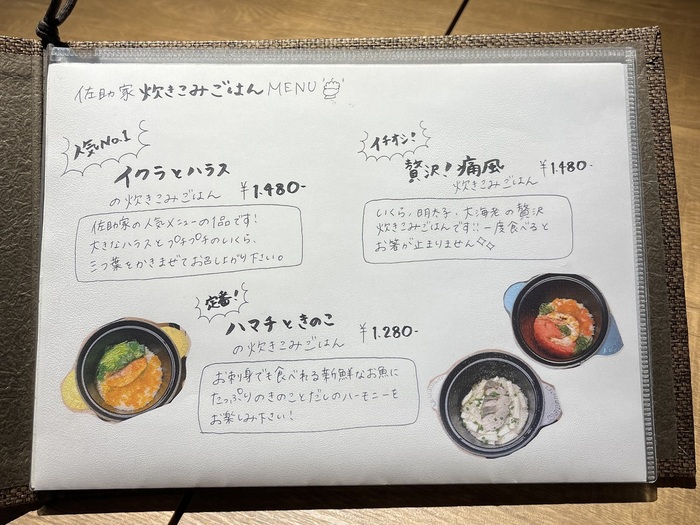 佐助家 炊きこみごはん MENU
人気No.1
イクラとハラス
の炊きこみごはん ¥1.480-
佐助家の人気メニューの1品です!
大きなハラスとプチプチのいくら、
三つ葉をかきまぜてお召し上がり下さい。
イチオシ!
贅沢!痛風
炊きこみごはん ¥1.480-
いくら、明太子、大海老の贅沢
炊きこみごはんです!!一度食べると
お箸が止まりません
定番!
ハマチときのこ
の炊きこみごはん ¥1.280-
お刺身でも食べれる新鮮なお魚に
たっぷりのきのことだしのハーモニーを
お楽しみ下さい!